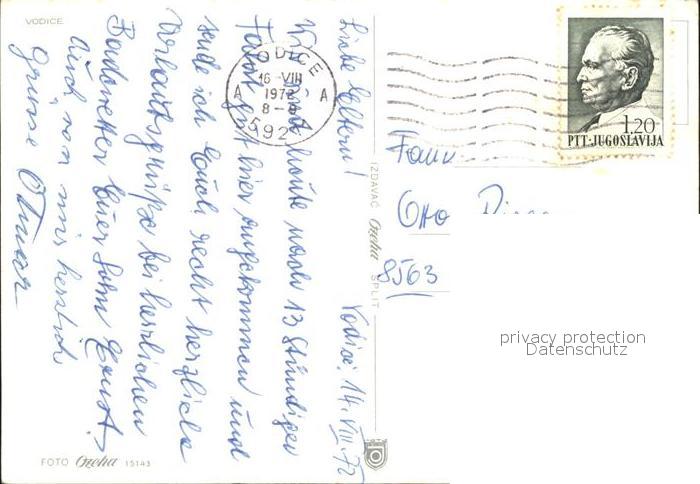 VODICE
Liebe Eltern! Vodice, 14. VIII. 72
Wir sind heute nach 13 stündiger
Fahrt gut hier angekommen und
sende ich Euch recht herzliche
Urlaubsgrüße bei herrlichen
Badewetter Euer Sohn Ernst.
Auch von mir herzliche
Grüsse
FOTO Ozeha 15143
IZDAVAČ Ozeha SPLIT
VODICE
16 VIII
1972
A A
8-9
592
1.20
PTT·JUGOSLAVIJA
Fam
Otto
8563
privacy protection
Datenschutz